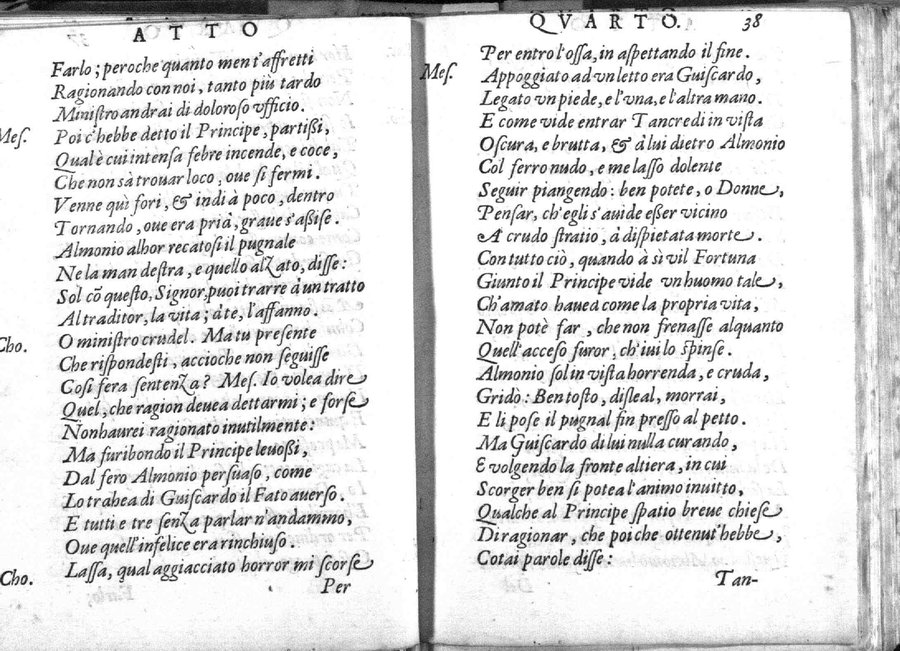 ATTO
Farlo; peroche quanto men t'affretti
Ragionando con noi, tanto più tardo
Ministro andrai di doloroso vfficio.
Mes. Poi c'hebbe detto il Principe, partißi,
Qual è cui intensa febre incende, e coce,
Che non sà trouar loco, oue si fermi.
Venne quì fori, & indi à poco, dentro
Tornando, oue era prià, graue s'aßise.
Almonio alhor recatosi il pugnale
Ne la man destra, e quello alzato, disse:
Sol cõ questo, Signor, puoi trarre à un tratto
Al traditor, la vita; à te, l'affanno.
Cho. O ministro crudel. Ma tu presente
Che rispondesti, accioche non seguisse
Cosi fera sentenza? Mes. Io volea dire
Quel, che ragion deuea dettarmi; e forse
Non haurei ragionato inutilmente:
Ma furibondo il Principe leuoßi,
Dal fero Almonio persuaso, come
Lo trahea di Guiscardo il Fato auerso.
E tutti e tre senza parlar n'andammo,
Oue quell'infelice era rinchiuso.
Cho. Lassa, qual aggiacciato horror mi scorse
Per
QVARTO. 38
Per entro l'ossa, in aspettando il fine.
Mes. Appoggiato ad vn letto era Guiscardo,
Legato vn piede, e l'vna, e l'altra mano.
E come vide entrar Tancredi in vista
Oscura, e brutta, & à lui dietro Almonio
Col ferro nudo, e me lasso dolente
Seguir piangendo: ben potete, o Donne,
Pensar, ch'egli s'auide eßer vicino
A crudo stratio, à dispietata morte.
Con tutto ciò, quando à sì vil Fortuna
Giunto il Principe vide vn huomo tale,
Ch'amato hauea come la propria vita,
Non potè far, che non frenasse alquanto
Quell'acceso furor, ch'iui lo spinse.
Almonio sol in vista horrenda, e cruda,
Grido: Ben tosto, disleal, morrai,
E li pose il pugnal fin presso al petto.
Ma Guiscardo di lui nulla curando,
E volgendo la fronte altiera, in cui
Scorger ben si potea l'animo inuitto,
Qualche al Principe spatio breue chiese
Di ragionar, che poi che ottenut' hebbe,
Cotai parole disse:
Tan-